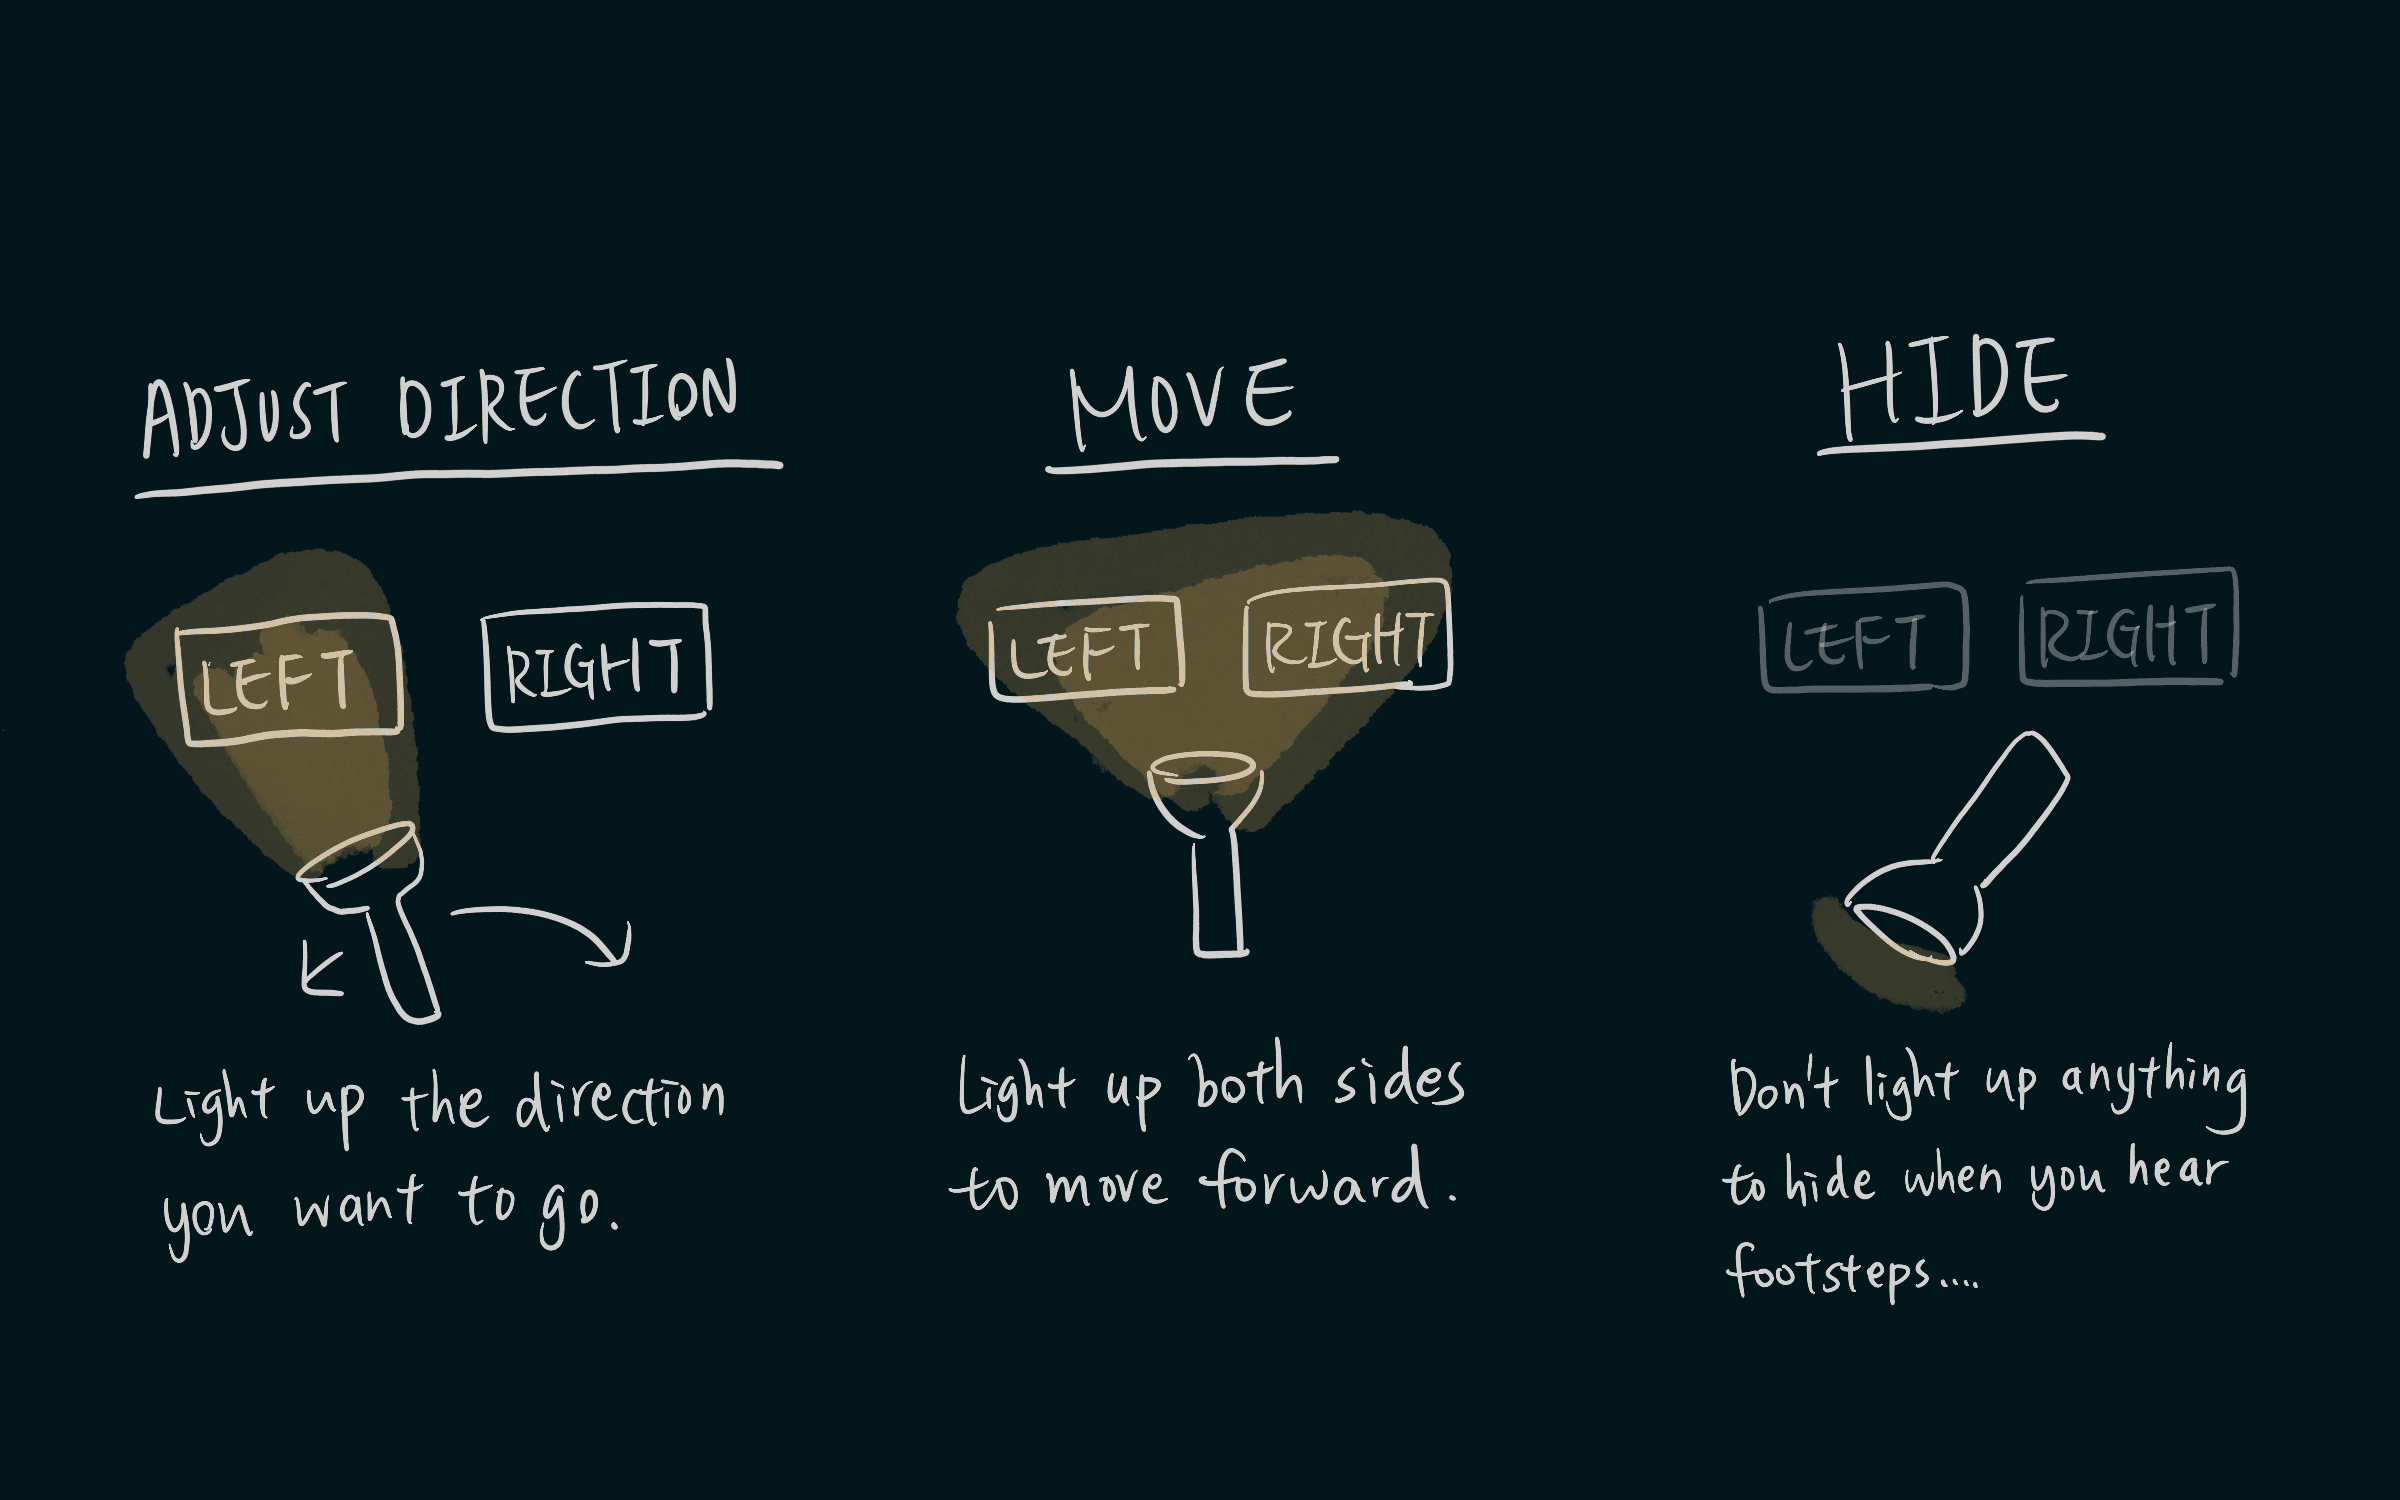 ADJUST DIRECTION
LEFT
RIGHT
Light up the direction
you want to go.
MOVE
LEFT
RIGHT
Light up both sides
to move forward.
HIDE
LEFT
RIGHT
Don't light up anything
to hide when you hear
footsteps....